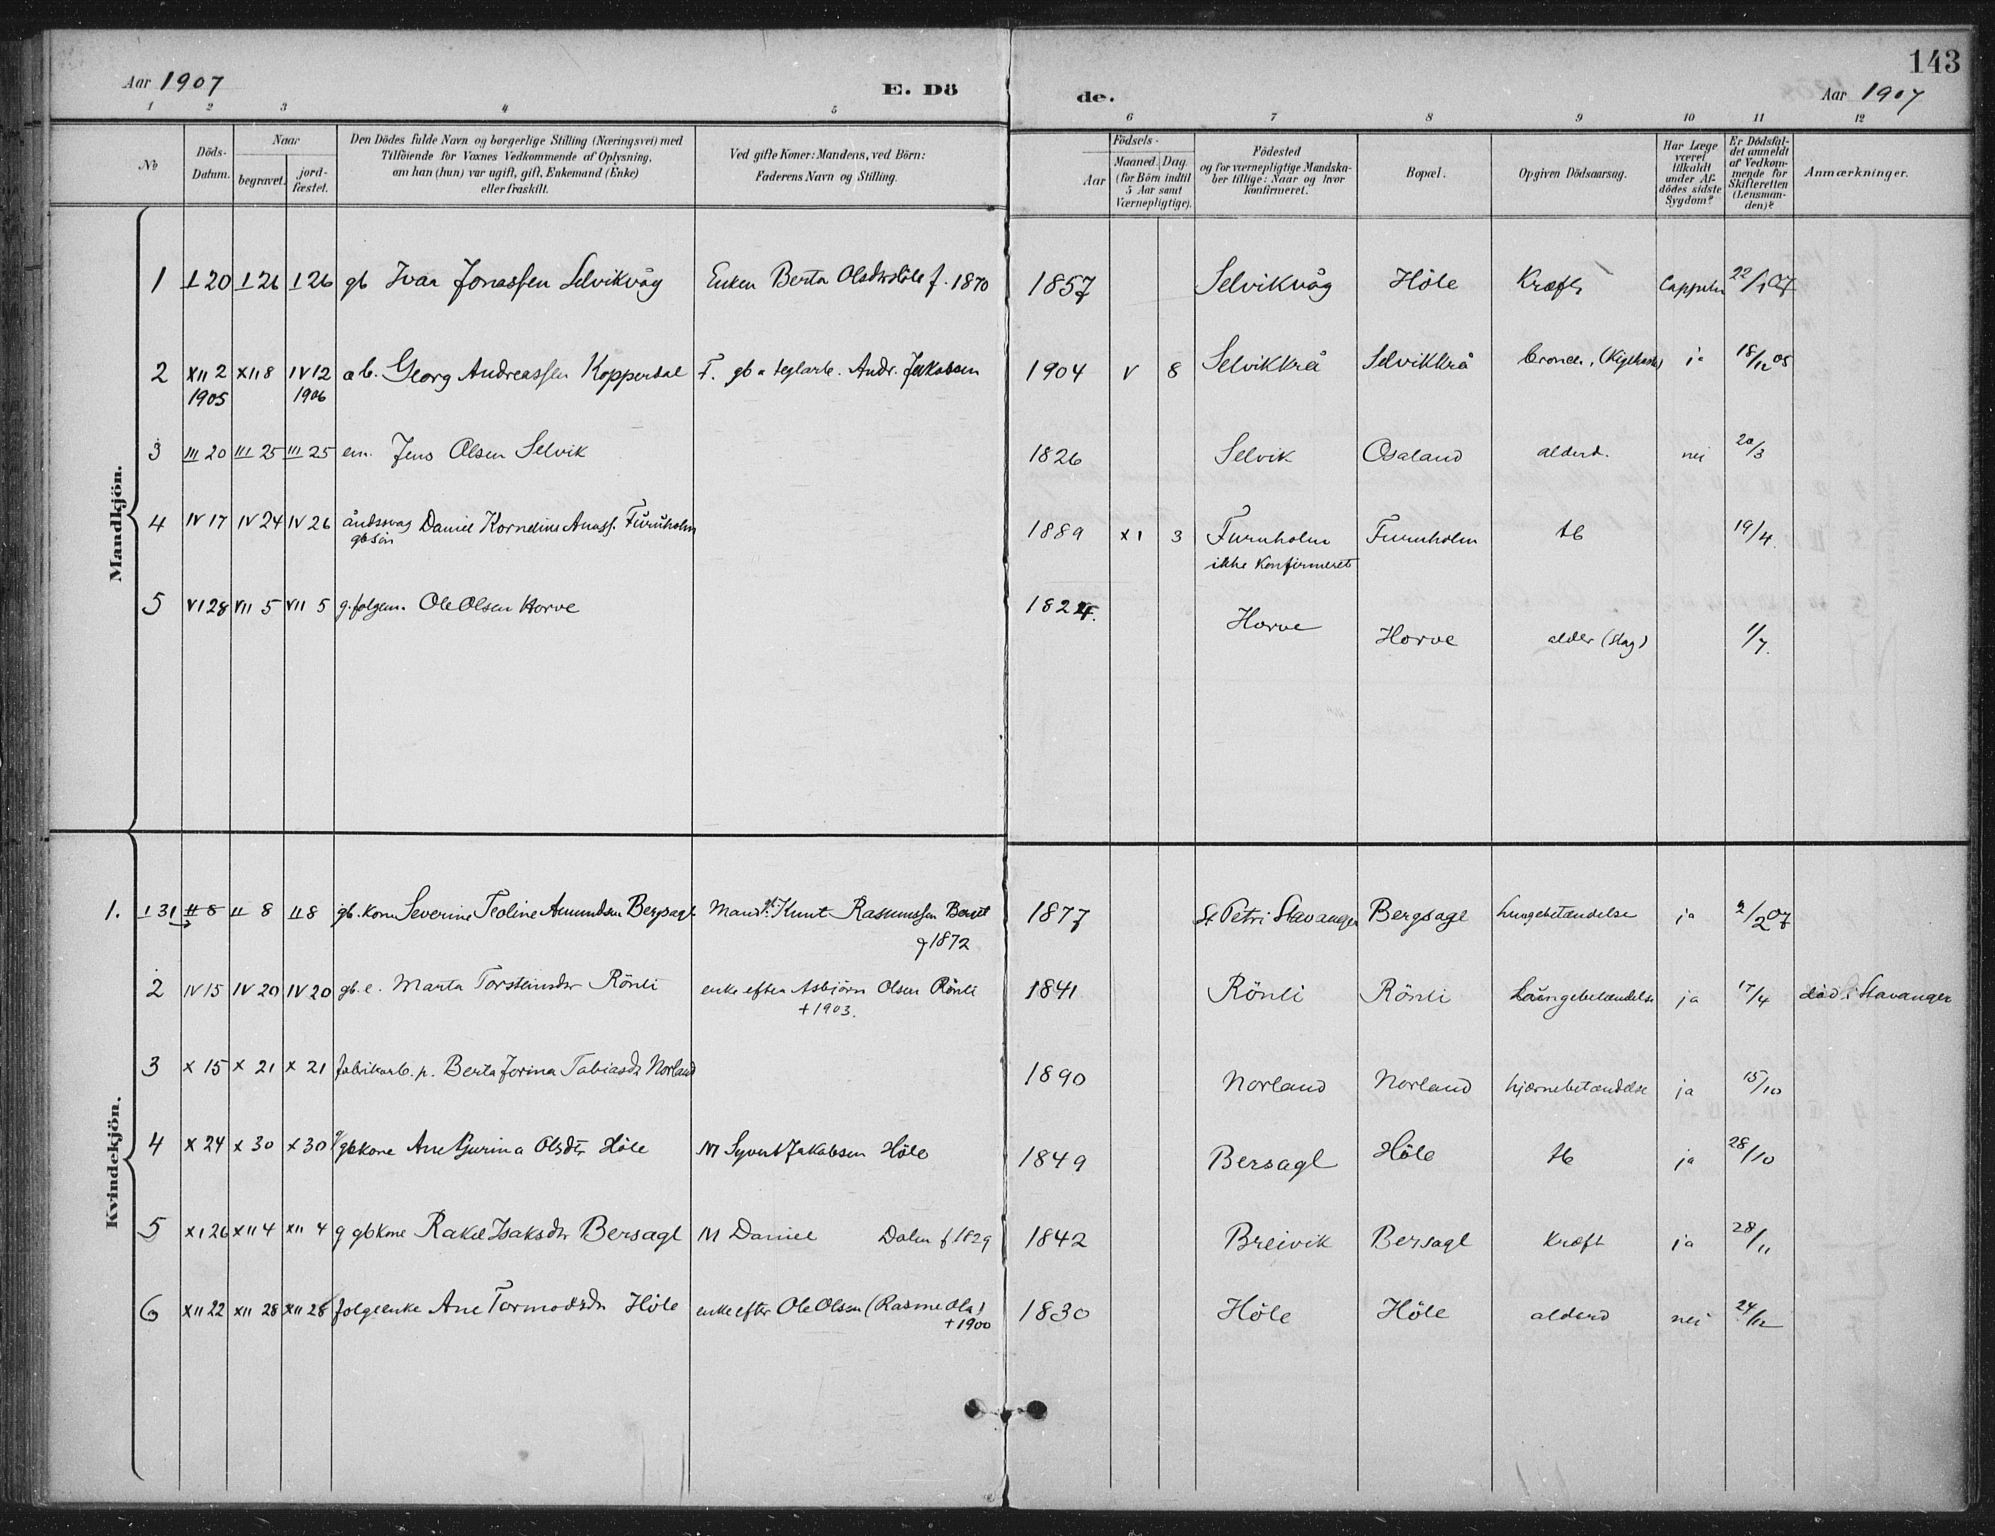 143
Aar 1907
E. Dö
de.
Aar 1907
1 2 3 4 5 6 7 8 9 10 11 12
№
Döds-
Datum.
Naar
begravet.
jord-
fæstet.
Den Dödes fulde Navn og borgerlige Stilling (Næringsvei) med
Tilföiende for Voxnes Vedkommende af Oplysning,
om han (hun) var ugift, gift, Enkemand (Enke)
eller fraskilt.
Ved gifte Koner: Mandens, ved Börn:
Faderens Navn og Stilling.
Födsels-
Aar
Maaned. Dag.
(for Börn indtil
5 Aar samt
Værnepligtige).
Födested
og for værnepligtige Mandska-
ber tillige: Naar og hvor
konfirmeret.
Bopæl.
Opgiven Dödsaarsag.
Har Læge
været
tilkaldt
under Af-
dödes sidste
Sygdom?
Er Dödsfal-
det anmeldt
af Vedkom-
mende for
Skifteretten
(Lensman-
den)?
Anmærkninger.
Mandkjön.
1 I 20 I 26 I 26 gb Ivar Jonassen Selvikvåg Enken Berta f. 1870 1857 Selvikvåg Höle Kræft 22/1 07
2 XII 2 XII 8 IV 12 Georg Andreassen Kopperdal F. gb Andr. Jakobsen 1904 V 8 Selvikkrå Selvikkrå ja 18/12 05
1905 1906
3 III 20 III 25 III 25 em. Jens Olsen Selvik 1826 Selvik Osaland alderd. nei 20/3
4 IV 17 IV 24 IV 26 åndssvag Daniel Kornelius Furuholm 1889 XI 3 Furuholm Furuholm tb 19/4.
gbsön
ikke konfirmeret
5 VI 28 VII 5 VII 5 g. folgem. Ole Olsen Horve 1824. Horve Horve alder (slag) 1/7.
Kvindekjön.
1. I 31 II 8 II 8 II 8 gb. kone Severine Teoline Bergsagl Mand Knut Rasmussen 1877 St Petri Stavanger Bergsagl Lungebetændelse ja 2/2 07
1872
2 IV 15 IV 20 IV 20 gb. e. Marta Torsteinsdtr Rönli enke efter Asbjörn Olsen Rönli 1841 Rönli Rönli Lungebetændelse ja 17/4 död i Stavanger
+ 1903.
3 X 15 X 21 X 21 fabrikarb. p. Berta Jorina Tobiasdtr Norland 1890 Norland Norland hjærnebetændelse ja 15/10
4 X 24 X 30 X 30 g gbkone Ane Gurina Olsdtr Höle M Syvert Jakobsen Höle 1849 Bersagl Höle tb ja 28/10
5 XI 26 XII 4 XII 4 g gbkone Rakel Isaksdtr Bersagl M Daniel f 1829 1842 Breivik Bersagl kræft ja 28/11
6 XII 22 XII 28 XII 28 folgeenke Ane Tormodsdtr Höle enke efter Ole Olsen (Rasme Ola) 1830 Höle Höle alderd nei 24/12
+ 1900